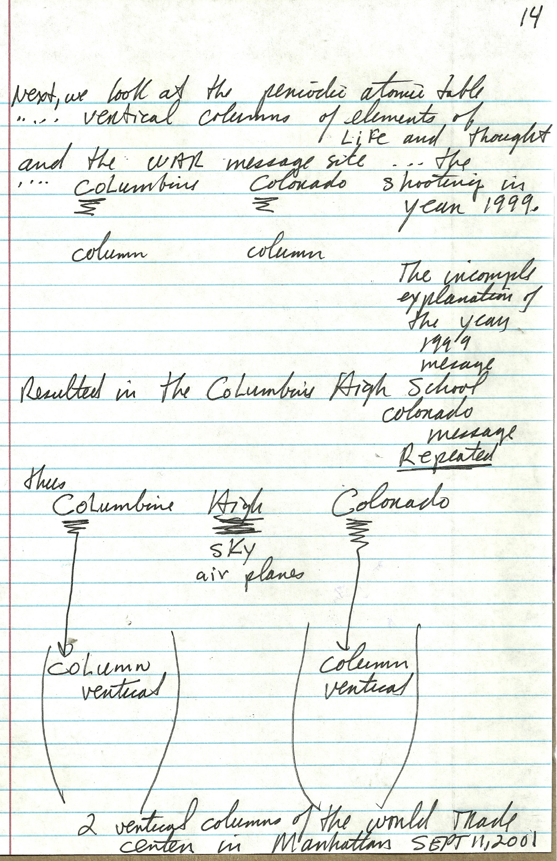 14
Next, we look at the periodic atomic table
..... vertical columns of elements of
Life and thought
and the WAR message site ... the
.... Columbine Colorado shooting in
year 1999.
column column
The incomple
explanation of
the year
1999
mesage
Resulted in the Columbine High School
colorado
message
Repeated
thus
Columbine High Colorado
sky
air planes
column column
vertical vertical
2 vertical columns of the world Trade
center in Manhattan SEPT 11, 2001